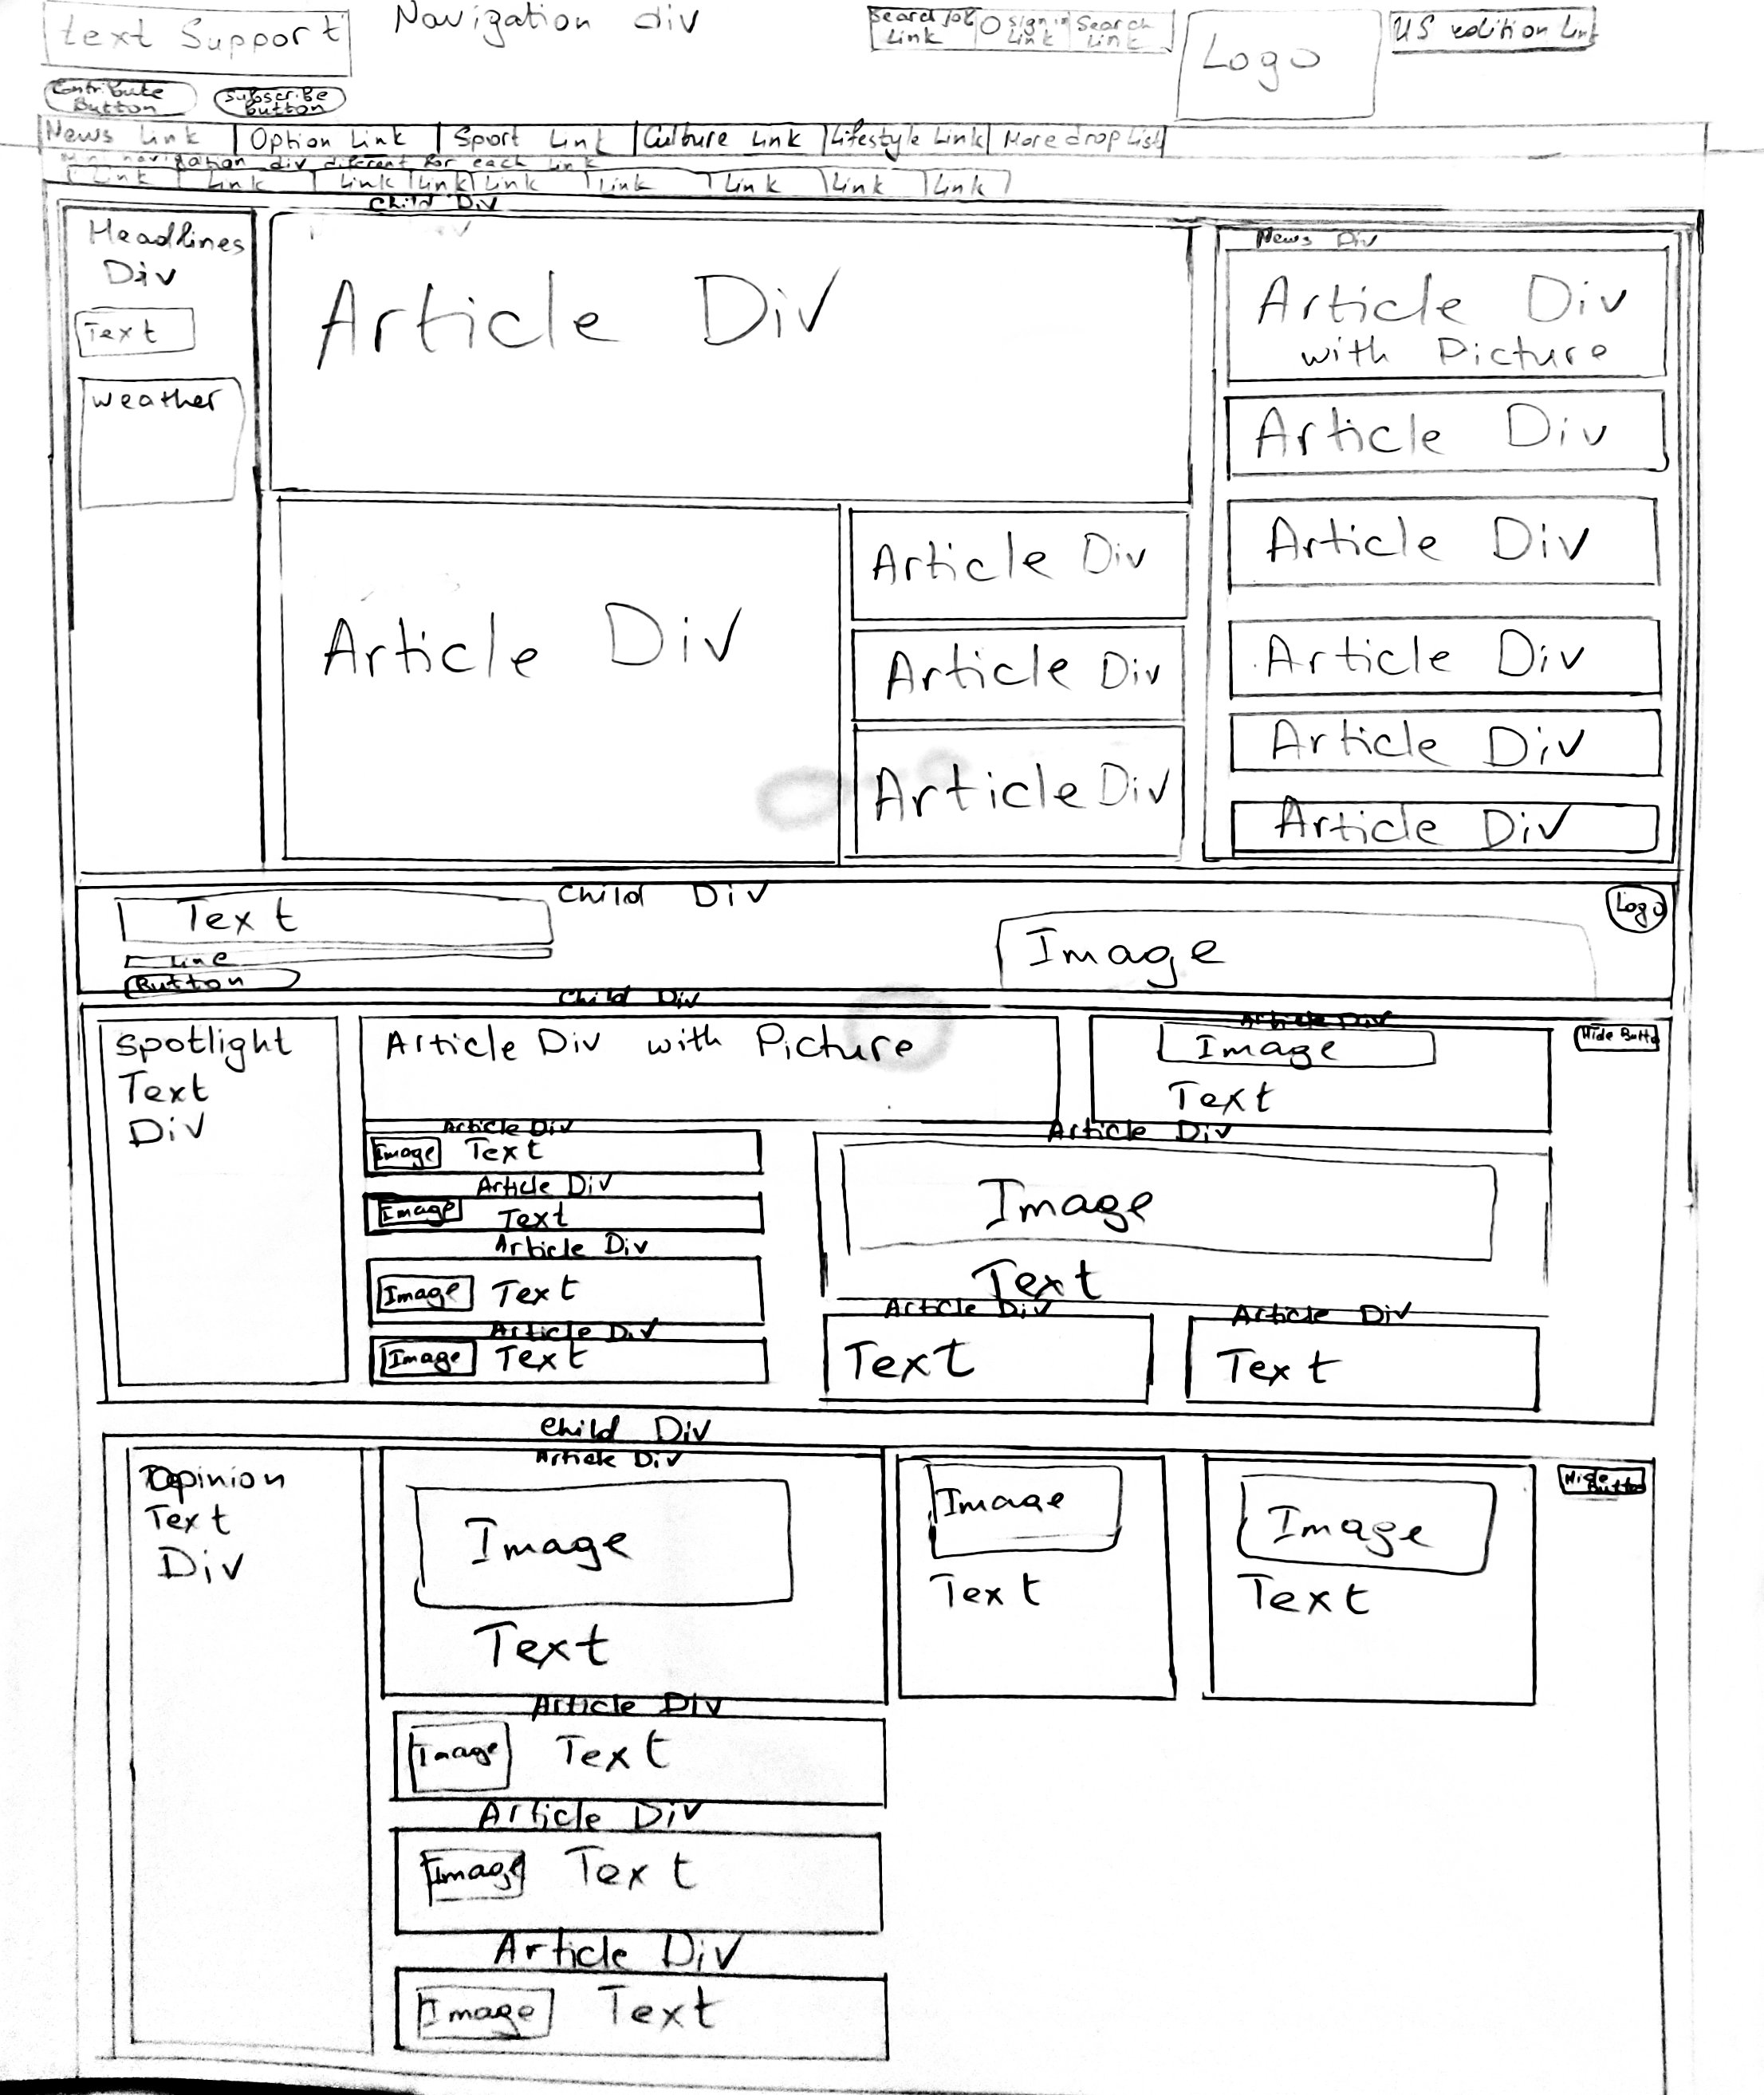 text Support
Navigation div
Search Job Link
Sign in Link
Search Link
Logo
US edition Link
Contribute Button
Subscribe button
News Link
Option Link
Sport Link
Culture Link
Lifestyle Link
More drop List
navigation div diferent for each link
Link
Link
Link
Link
Link
Link
Link
Link
Link
Child Div
Headlines
Div
Text
weather
Article Div
Article Div
Article Div
Article Div
Article Div
News Div
Article Div
with Picture
Article Div
Article Div
Article Div
Article Div
Article Div
Child Div
Text
Line
Button
Image
Logo
Child Div
Spotlight
Text
Div
Article Div with Picture
Article Div
Image
Text
Hide Butto
Article Div
Image Text
Article Div
Image Text
Article Div
Image Text
Article Div
Image Text
Article Div
Image
Text
Article Div
Text
Article Div
Text
Child Div
Opinion
Text
Div
Article Div
Image
Text
Image
Text
Image
Text
Hide Button
Article Div
Image Text
Article Div
Image Text
Article Div
Image Text